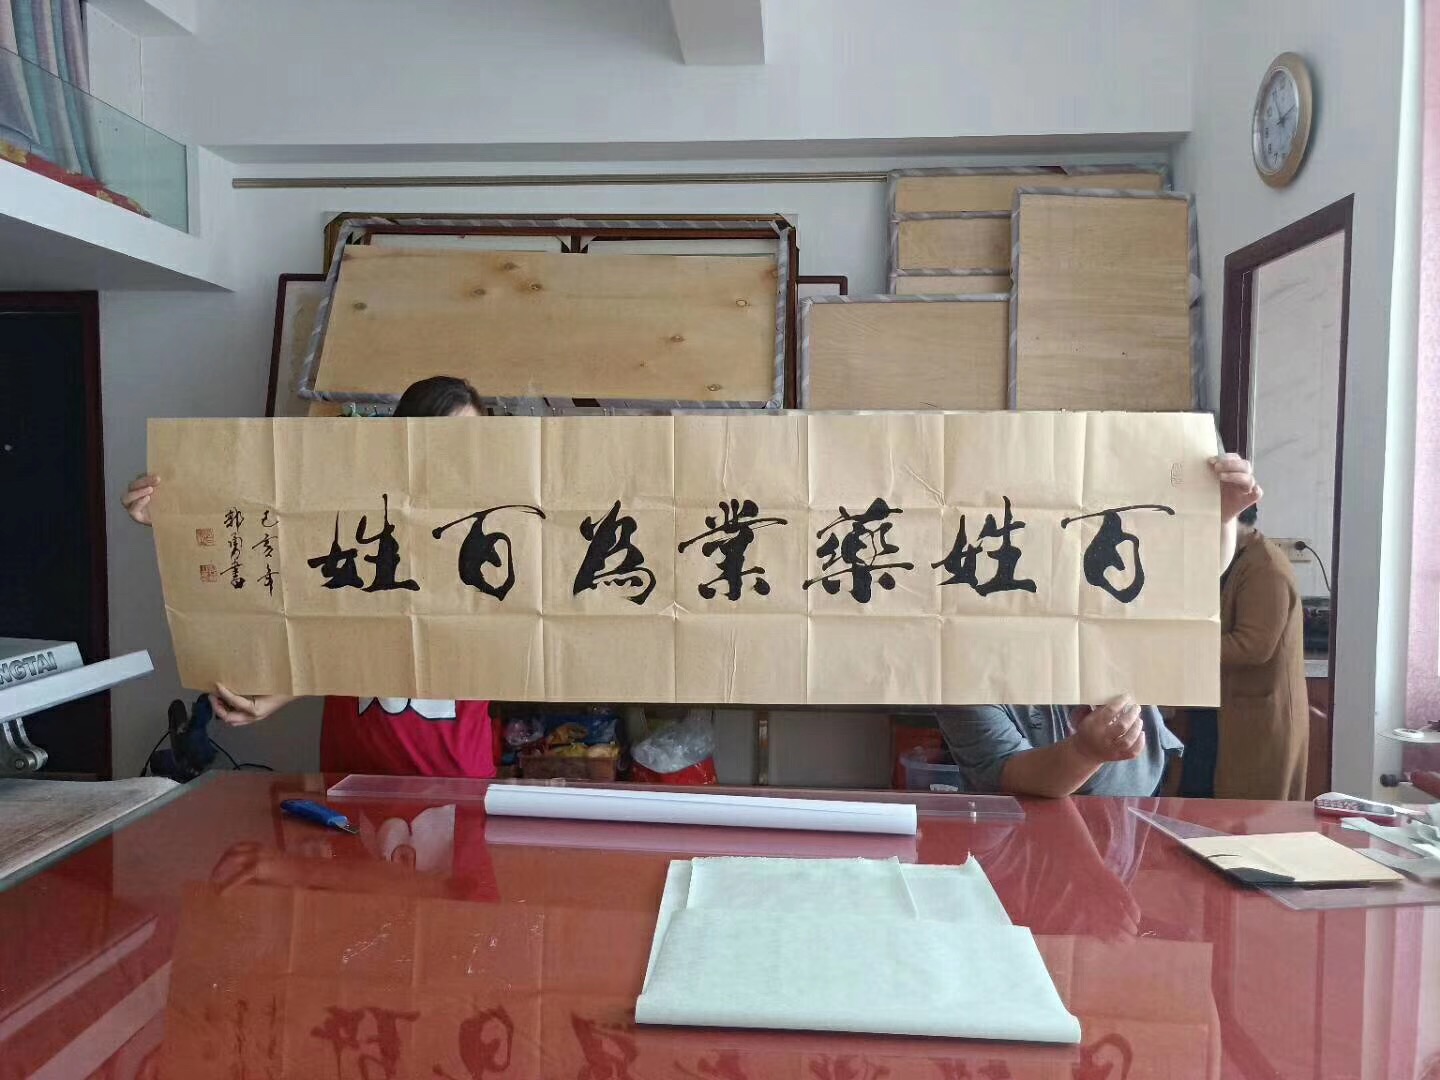 百姓藥業為百姓
己亥年
郭勇書
NGTAI